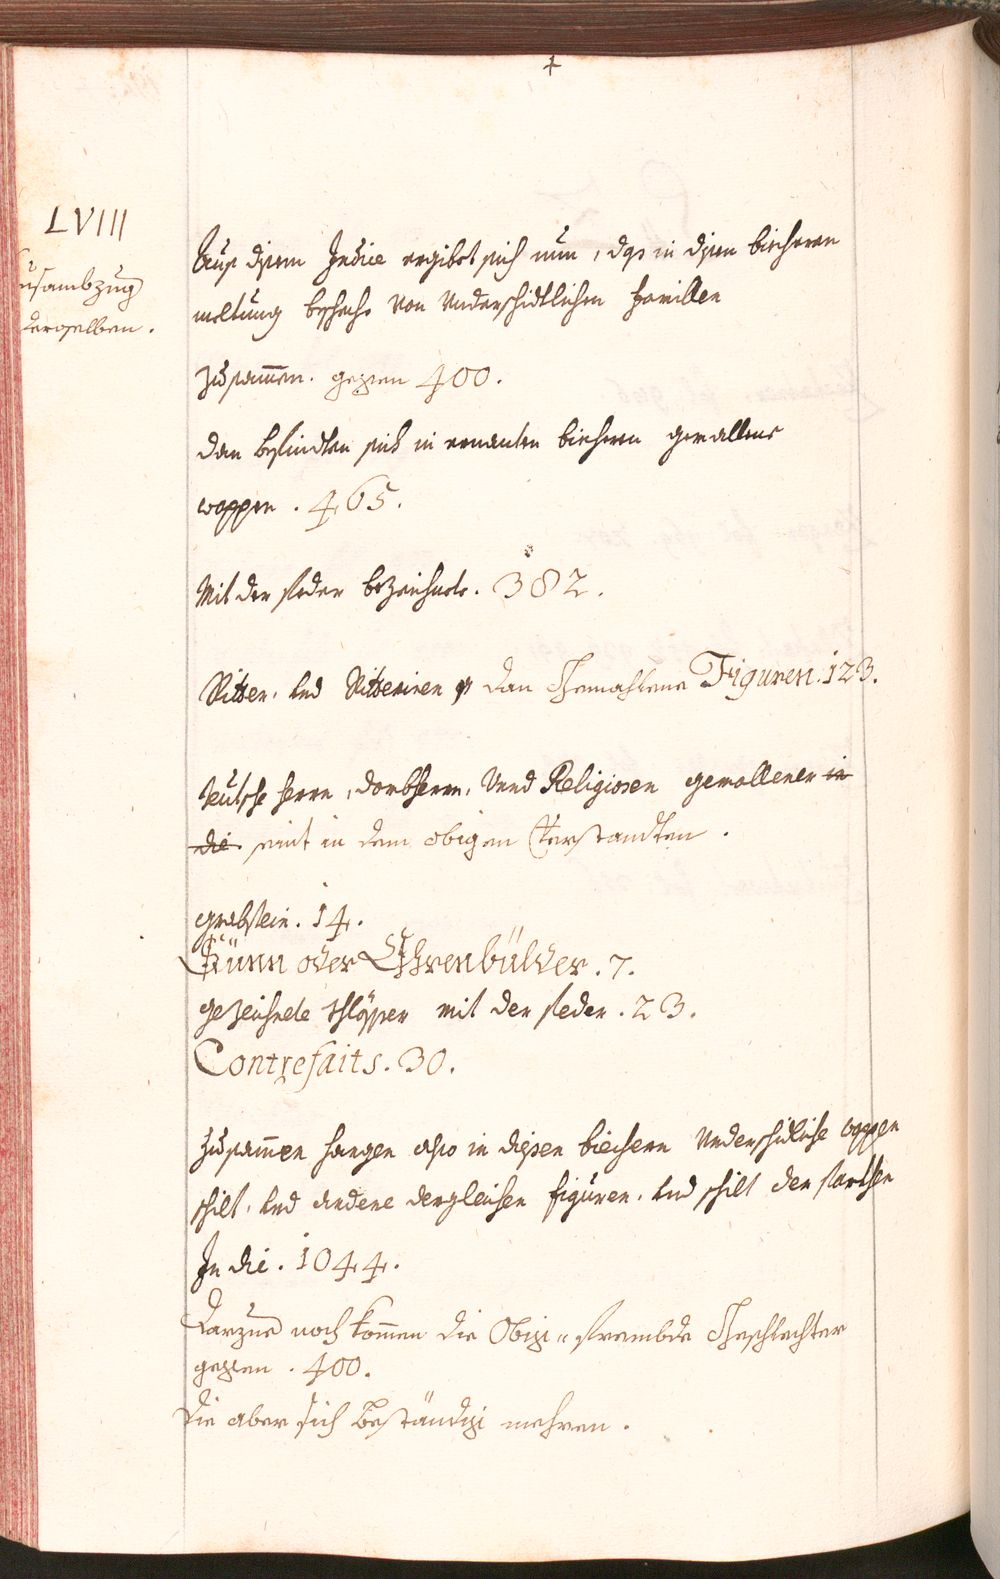 +
LVIII
usambzug
dergselben.
Auß disem Indice ergibet sich nun, das in disen biecheren
meldung beschech von Underschidtlichen Familien
zusamen. gegen 400.
dan befindten sich in ernanten biechern gemallene
wappen. 465.
Mit der feder bezeichnete. 382.
Ritter. und Ritterinen dan Gemahlene Figuren. 123.
teutsche herrn, dombherrn, Unnd Religiosen gemallener in
die seint in dem obigen Verstandten.
grabstein. 14.
Günn oder Ehrenbülder. 7.
gezeichnete schlösser mit der feder. 23.
Contrefaits. 30.
Zusamen hangen also in dißen biechern Underschidliche wappen
schilt. und andere dergleichen figuren. und schilt der
In die. 1044.
Darzue noch komen die Obige frembde Geschlechter
gegen. 400.
die aber sich beständig mehren.